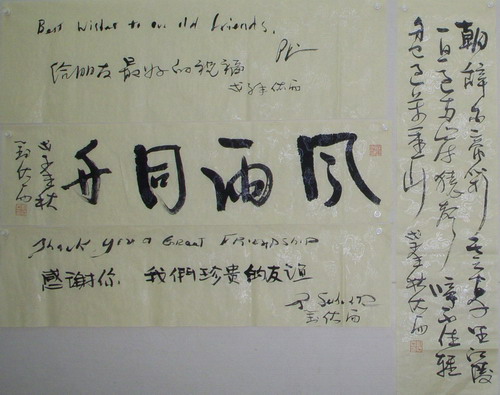 Best Wishes to our old friends.
给朋友最好的祝福
风雨同舟
戊子年秋
Thank you a Great Friendship
感谢你. 我們珍贵的友谊
朝辞白帝彩云间千里江陵
一日还两岸猿声啼不住轻
舟已过万重山
戊子年秋